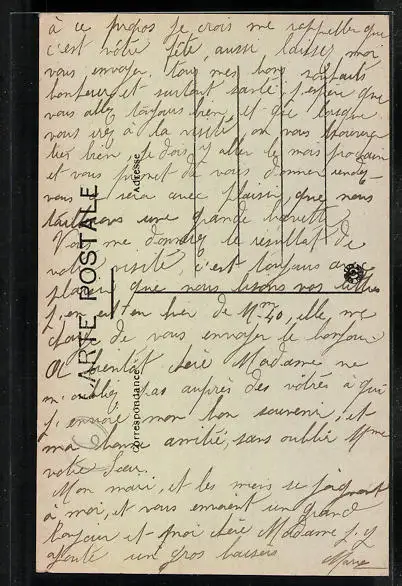 à ce propos je crois me rappeller que
c'est votre fête, aussi laissez moi
vous envoyer tous mes bons souhaits
bonheur et surtout santé j'espère que
vous allez toujours bien, et que lorsque
vous irez à la visite, on vous trouvera
très bien. Je dois y aller le mois prochain
et vous promet de vous donner rendez-
vous sera avec plaisir, que nous
une grande
Vous me donnerez le résultat de
votre visite, c'est toujours avec
plaisir que nous lisons vos lettres
j'en ai eu hier de Mme 40, elle me
de vous envoyer le bonjour
A bientôt chère Madame ne
m'oubliez pas auprès des vôtres à qui
j'envoie mon bon souvenir, et
ma bonne amitié, sans oublier Mme
votre Sœur.
Mon mari, et les miens se joignent
à moi, et vous envoient un grand
bonjour et moi chère Madame j'y
ajoute un gros baisers
Marie
CARTE POSTALE
Correspondance
Adresse